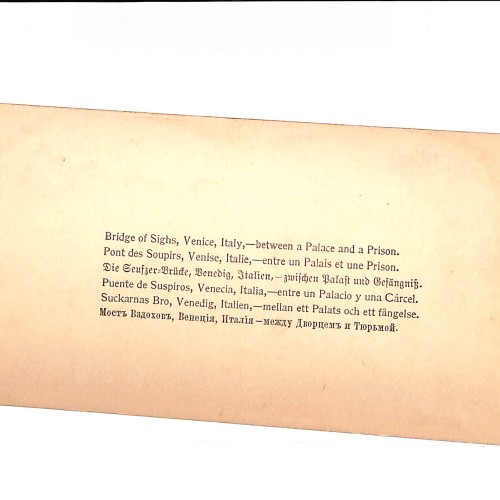 Bridge of Sighs, Venice, Italy,—between a Palace and a Prison.
Pont des Soupirs, Venise, Italie,—entre un Palais et une Prison.
Die Seufzer-Brücke, Venedig, Italien,—zwischen Palast und Gefängniß.
Puente de Suspiros, Venecia, Italia,—entre un Palacio y una Cárcel.
Suckarnas Bro, Venedig, Italien,—mellan ett Palats och ett fängelse.
Мостъ Вздоховъ, Венеція, Италія—между Дворцемъ и Тюрьмой.